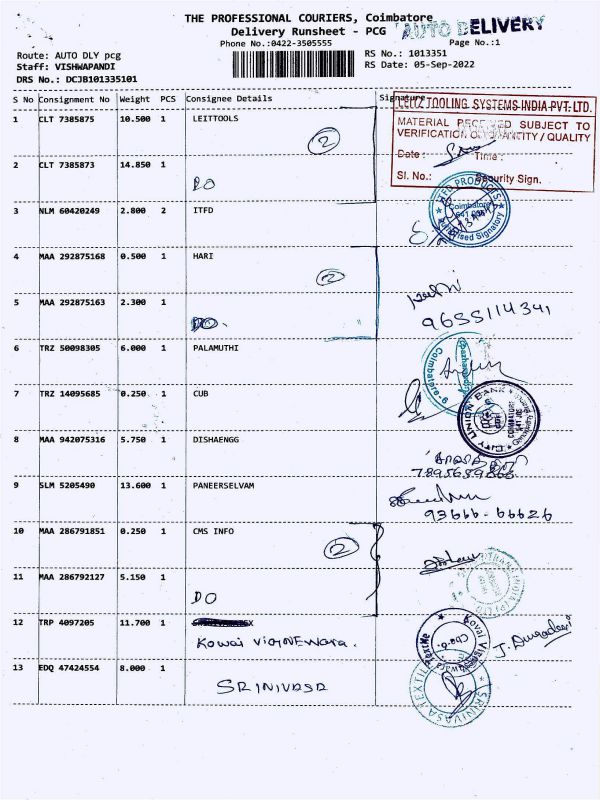 THE PROFESSIONAL COURIERS, Coimbatore
Delivery Runsheet - PCG
AUTO DELIVERY
Phone No.:0422-3505555
Page No.:1
Route: AUTO DLY pcg
RS No.: 1013351
Staff: VISHWAPANDI
RS Date: 05-Sep-2022
DRS No.: DCJB101335101
S No Consignment No Weight PCS Consignee Details Signature
LEITZ TOOLING SYSTEMS INDIA PVT. LTD.
MATERIAL RECEIVED SUBJECT TO
VERIFICATION OF QUANTITY / QUALITY
Date : Time :
Sl. No.: Security Sign.
1 CLT 7385875 10.500 1 LEITTOOLS
2
2 CLT 7385873 14.850 1
DO
3 NLM 60420249 2.800 2 ITFD
ITFD PRODUCTS
Coimbatore
Authorised Signatory
4 MAA 292875168 0.500 1 HARI
2
5 MAA 292875163 2.300 1
DO.
9655114341
6 TRZ 50098305 6.000 1 PALAMUTHI
Coimbatore
7 TRZ 14095685 0.250 1 CUB
CITY UNION BANK
8 MAA 942075316 5.750 1 DISHAENGG
9 SLM 5205490 13.600 1 PANEERSELVAM
93666-66626
10 MAA 286791851 0.250 1 CMS INFO
2
11 MAA 286792127 5.150 1
DO
12 TRP 4097205 11.700 1
Kovai VIGNEWara.
J. Durgadevi
13 EDQ 47424554 8.000 1
SRINIVASA
SRINIVASA TEXTILE